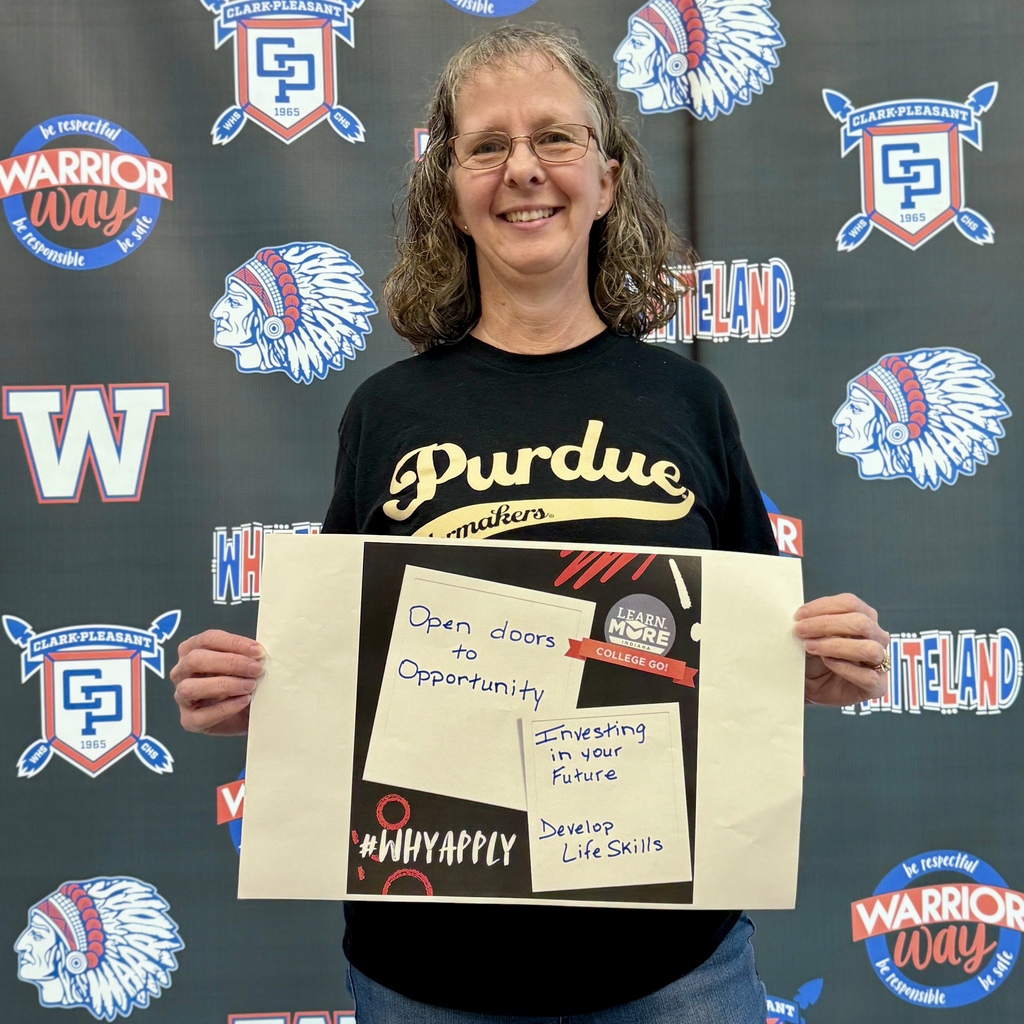 CLARK-PLEASANT
CP
1965
WHS CHS
be responsible
CLARK-PLEASANT
CP
1965
WHS CHS
be respectful
WARRIOR
Way
be responsible be safe
WARRIORS
WHITELAND
WARRIORS
W
Purdue
WHITELAND
CLARK-PLEASANT
CP
1965
WHS CHS
Open doors
to
Opportunity
LEARN
MORE
INDIANA
COLLEGE GO!
Investing
in your
Future
Develop
Life Skills
#WHYAPPLY
WHITELAND
WARRIORS
be respectful
WARRIOR
Way
be responsible be safe